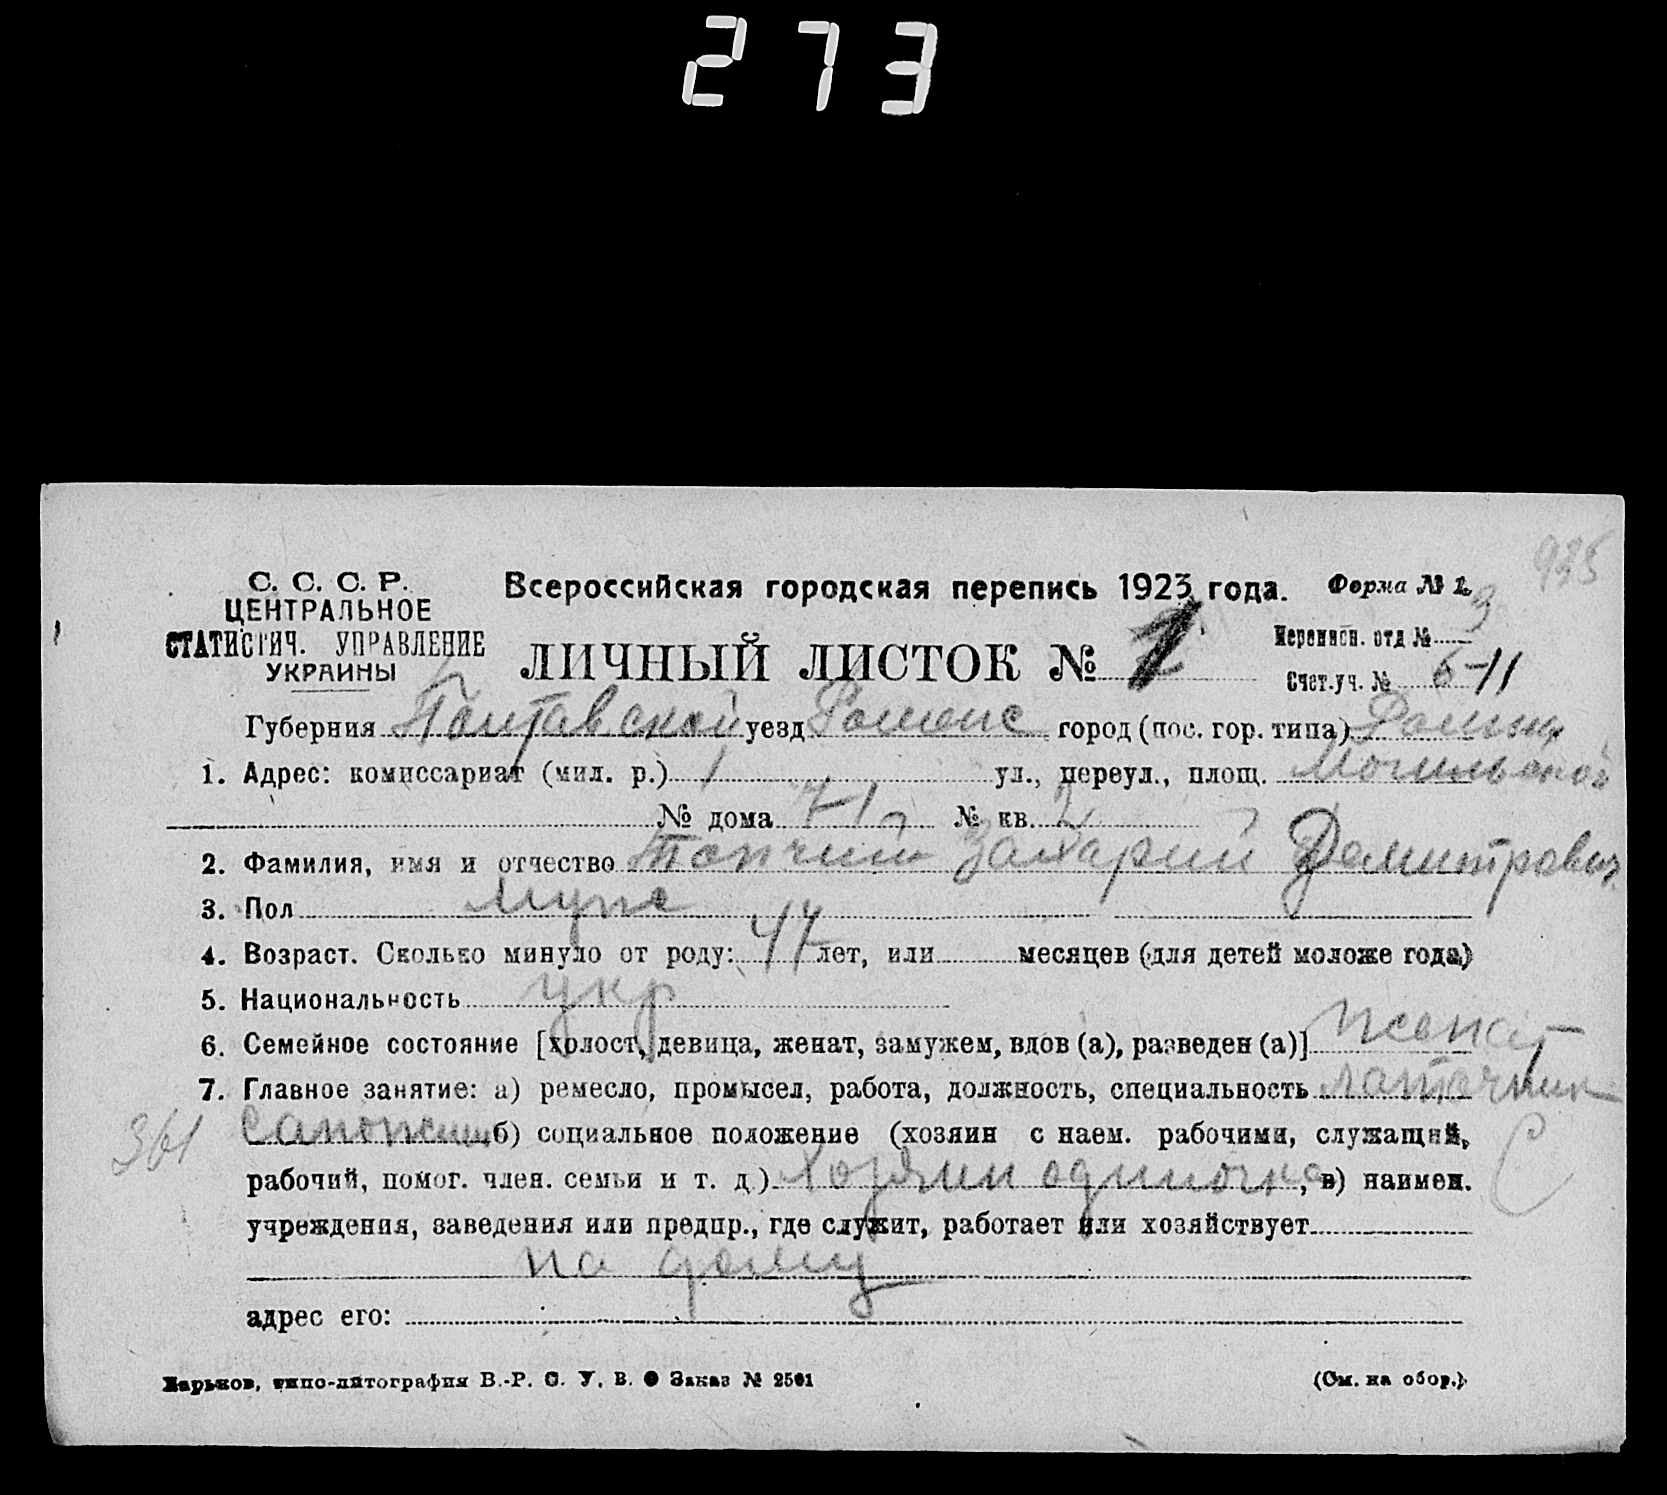 273
935
С. С. С. Р.
ЦЕНТРАЛЬНОЕ
СТАТИСТИЧ. УПРАВЛЕНИЕ
УКРАИНЫ
Всероссийская городская перепись 1923 года.
Форма № 1.
ЛИЧНЫЙ ЛИСТОК №
Переписн. отд № 3
Счет.уч. № 6-11
Губерния Полтавской уезд Роменс город (пос. гор. типа) Ромны
1. Адрес: комиссариат (мил. р.) 1 ул., переул., площ.
№ дома 71 № кв. 2
2. Фамилия, имя и отчество Топчий Захарий Демитрович
3. Пол мужс
4. Возраст. Сколько минуло от роду: 47 лет, или месяцев (для детей моложе года)
5. Национальность укр
6. Семейное состояние [холост, девица, женат, замужем, вдов (а), разведен (а)] женат
7. Главное занятие: а) ремесло, промысел, работа, должность, специальность латочник
361 сапожник б) социальное положение (хозяин с наем. рабочими, служащий,
рабочий, помог. член. семьи и т. д.) Хозяин одиночка, в) наимен.
учреждения, заведения или предпр., где служит, работает или хозяйствует
на дому
адрес его:
Харьков, типо-литография В.-Р. С. У. В. Заказ № 2501
(См. на обор.)